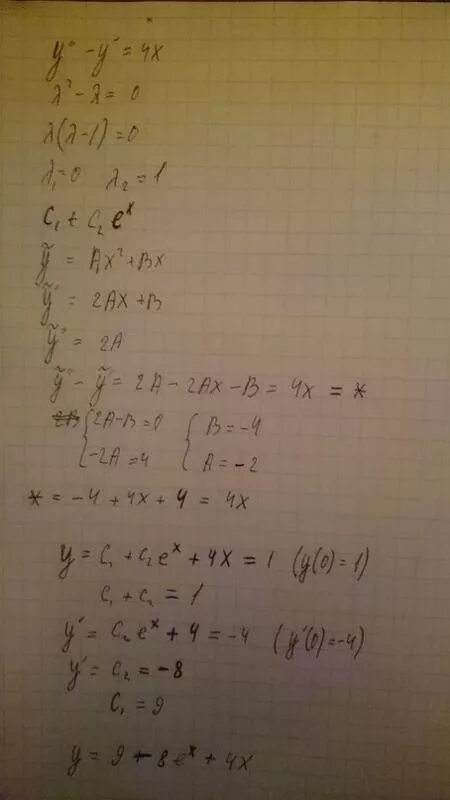 y'' - y' = 4x
λ² - λ = 0
λ(λ-1) = 0
λ₁ = 0 λ₂ = 1
C₁ + C₂ eˣ
ỹ = Ax² + Bx
ỹ' = 2Ax + B
ỹ'' = 2A
ỹ'' - ỹ' = 2A - 2Ax - B = 4x = *
{ 2A - B = 0 { B = -4
{ -2A = 4 { A = -2
* = -4 + 4x + 4 = 4x
y = C₁ + C₂ eˣ + 4x = 1 (y(0) = 1)
C₁ + C₂ = 1
y' = C₂ eˣ + 4 = -4 (y'(0) = -4)
y' = C₂ = -8
C₁ = 9
y = 9 - 8eˣ + 4x